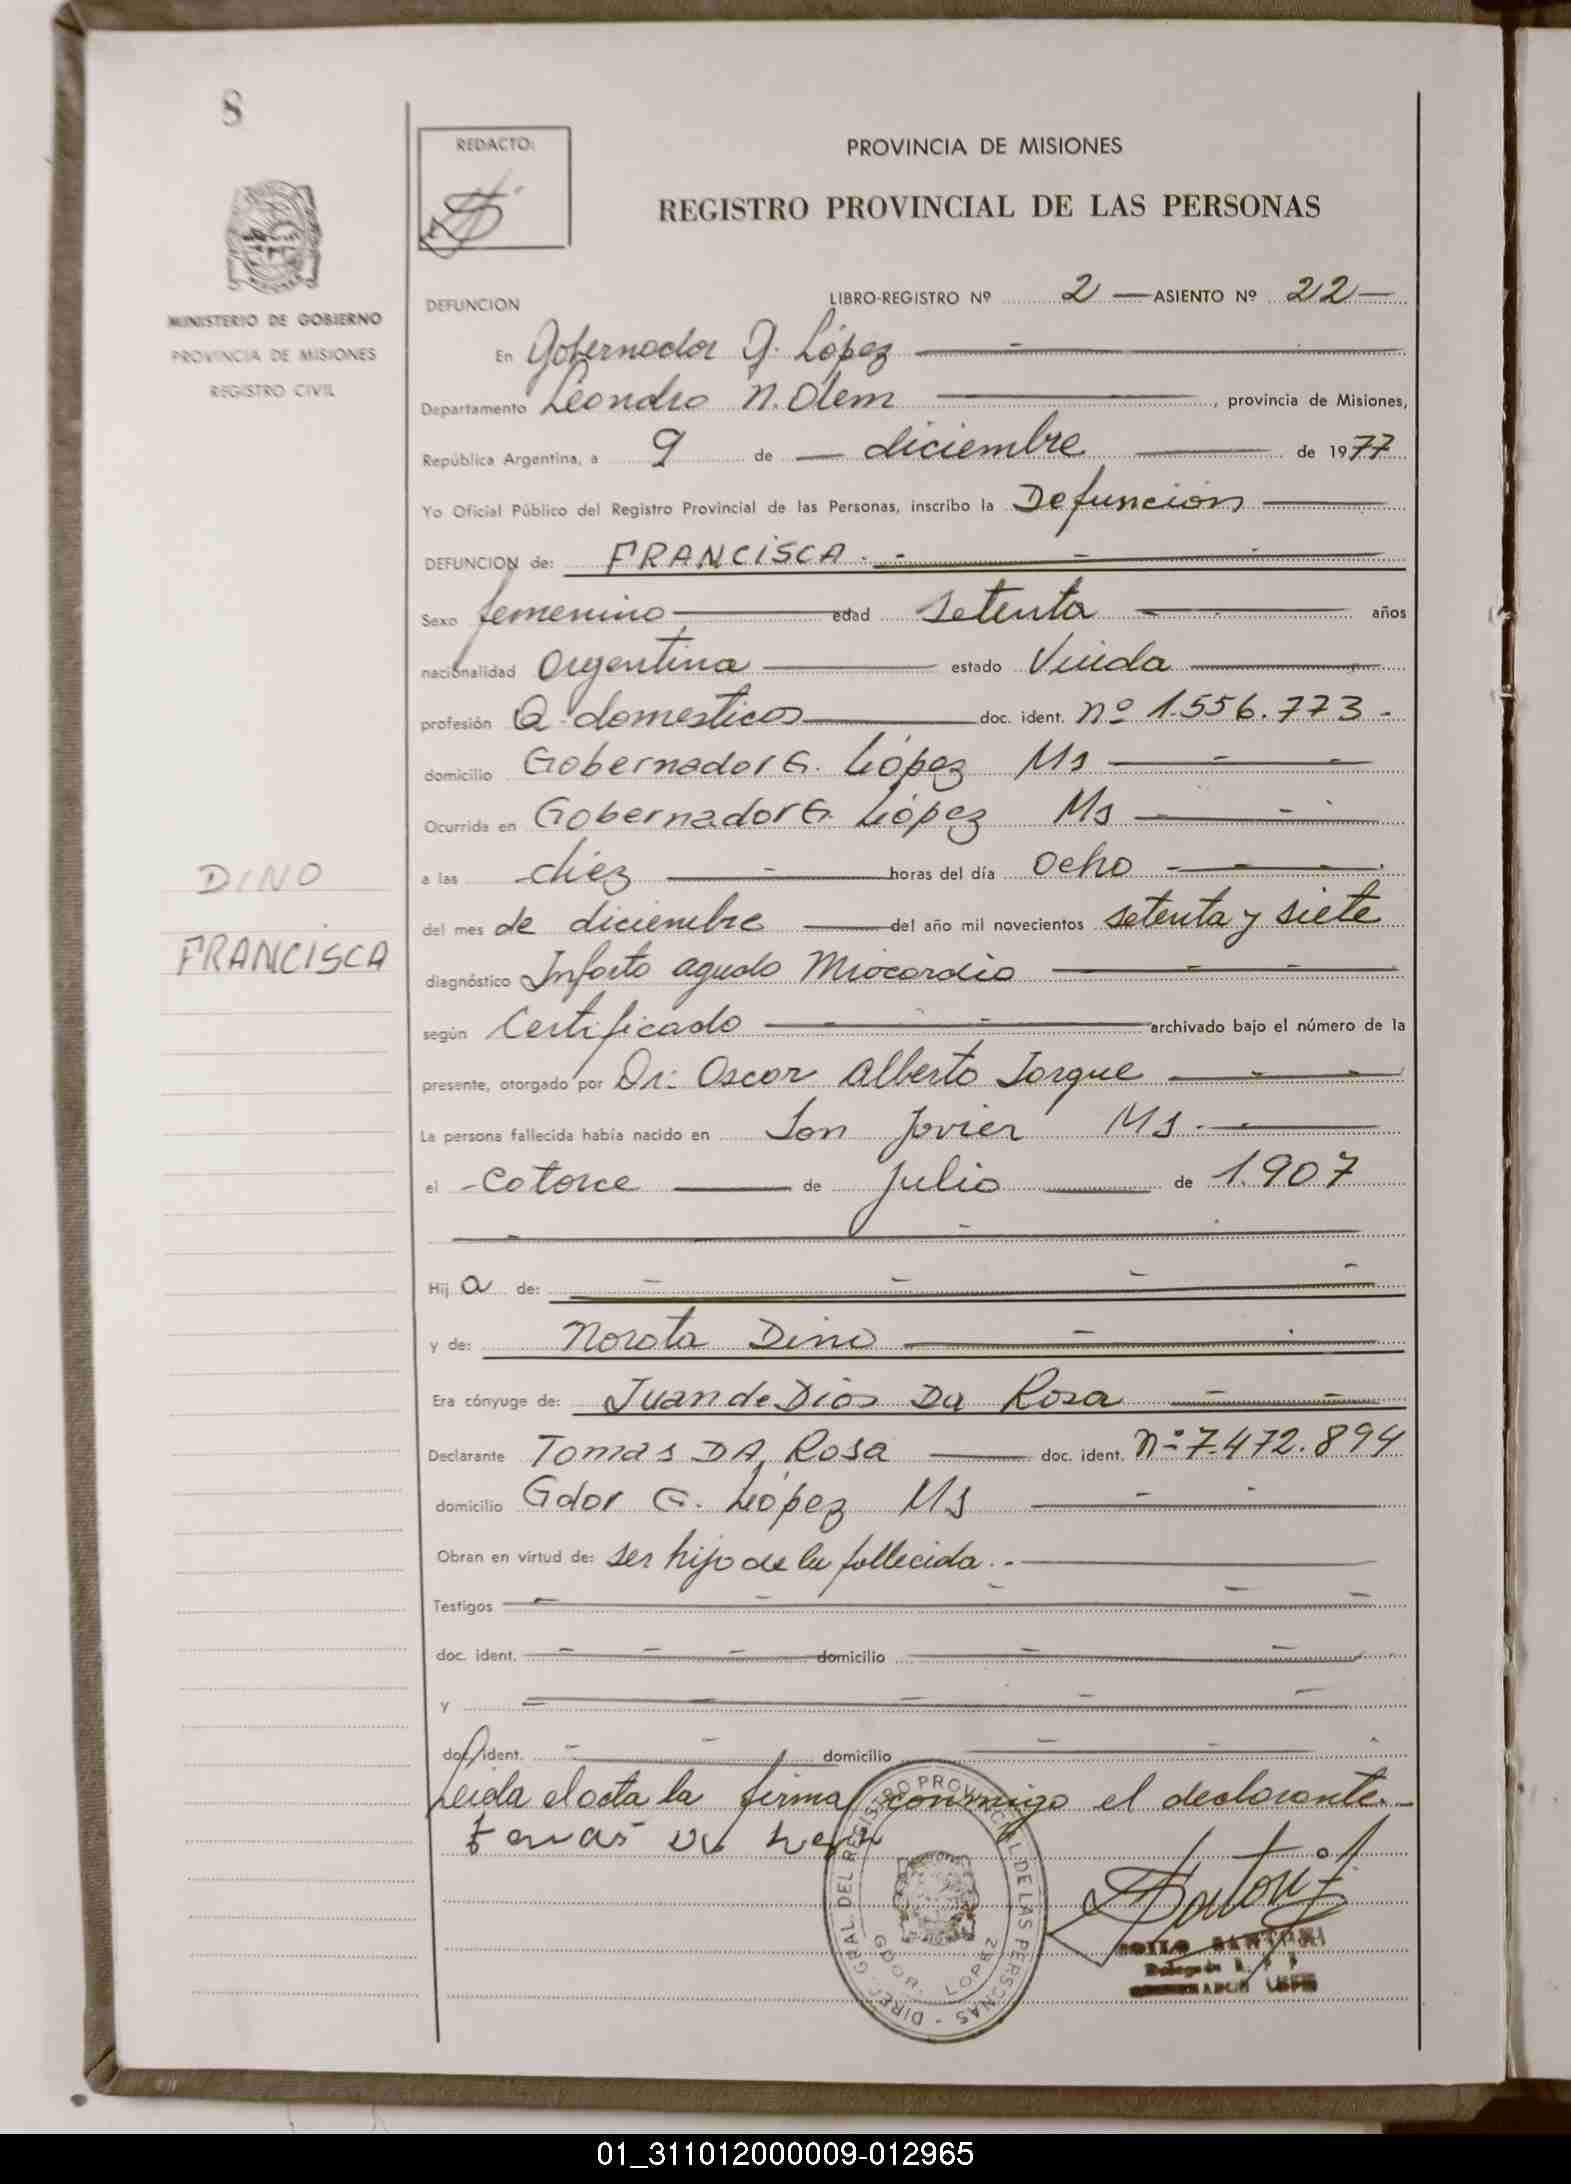 8
REDACTO:
PROVINCIA DE MISIONES
REGISTRO PROVINCIAL DE LAS PERSONAS
MINISTERIO DE GOBIERNO
PROVINCIA DE MISIONES
REGISTRO CIVIL
LIBRO-REGISTRO Nº 2 — ASIENTO Nº 22 —
DEFUNCION
En Gobernador G. López
Departamento Leandro N. Alem, provincia de Misiones,
República Argentina, a 9 de — diciembre — de 1977
Yo Oficial Público del Registro Provincial de las Personas, inscribo la Defunción
DEFUNCION de: FRANCISCA
Sexo femenino edad setenta años
nacionalidad Argentina estado Viuda
profesión Q. domesticos doc. ident. nº 1.556.773 -
domicilio Gobernador G. López Ms
Ocurrida en Gobernador G. López Ms
a las diez horas del día ocho
DINO
del mes de diciembre del año mil novecientos setenta y siete
FRANCISCA
diagnóstico Infarto agudo Miocardio
según Certificado archivado bajo el número de la
presente, otorgado por Dr. Oscar Alberto Jorque
La persona fallecida había nacido en San Javier Ms
el - catorce de julio de 1.907
Hij a de:
y de: Norata Dino
Era cónyuge de: Juan de Dios Da Rosa
Declarante Tomas DA Rosa doc. ident. Nº 7.472.894
domicilio Gdor G. López Ms
Obran en virtud de: ser hijo de la fallecida.-
Testigos
doc. ident. domicilio
y
doc. ident. domicilio
Leida el acta la firma conmigo el declarante.-
DIREC. GRAL DEL REGISTRO PROVINCIAL DE LAS PERSONAS -
GDOR. LOPEZ
SANTONI
Delegado
GOBERNADOR LOPEZ
01_311012000009-012965